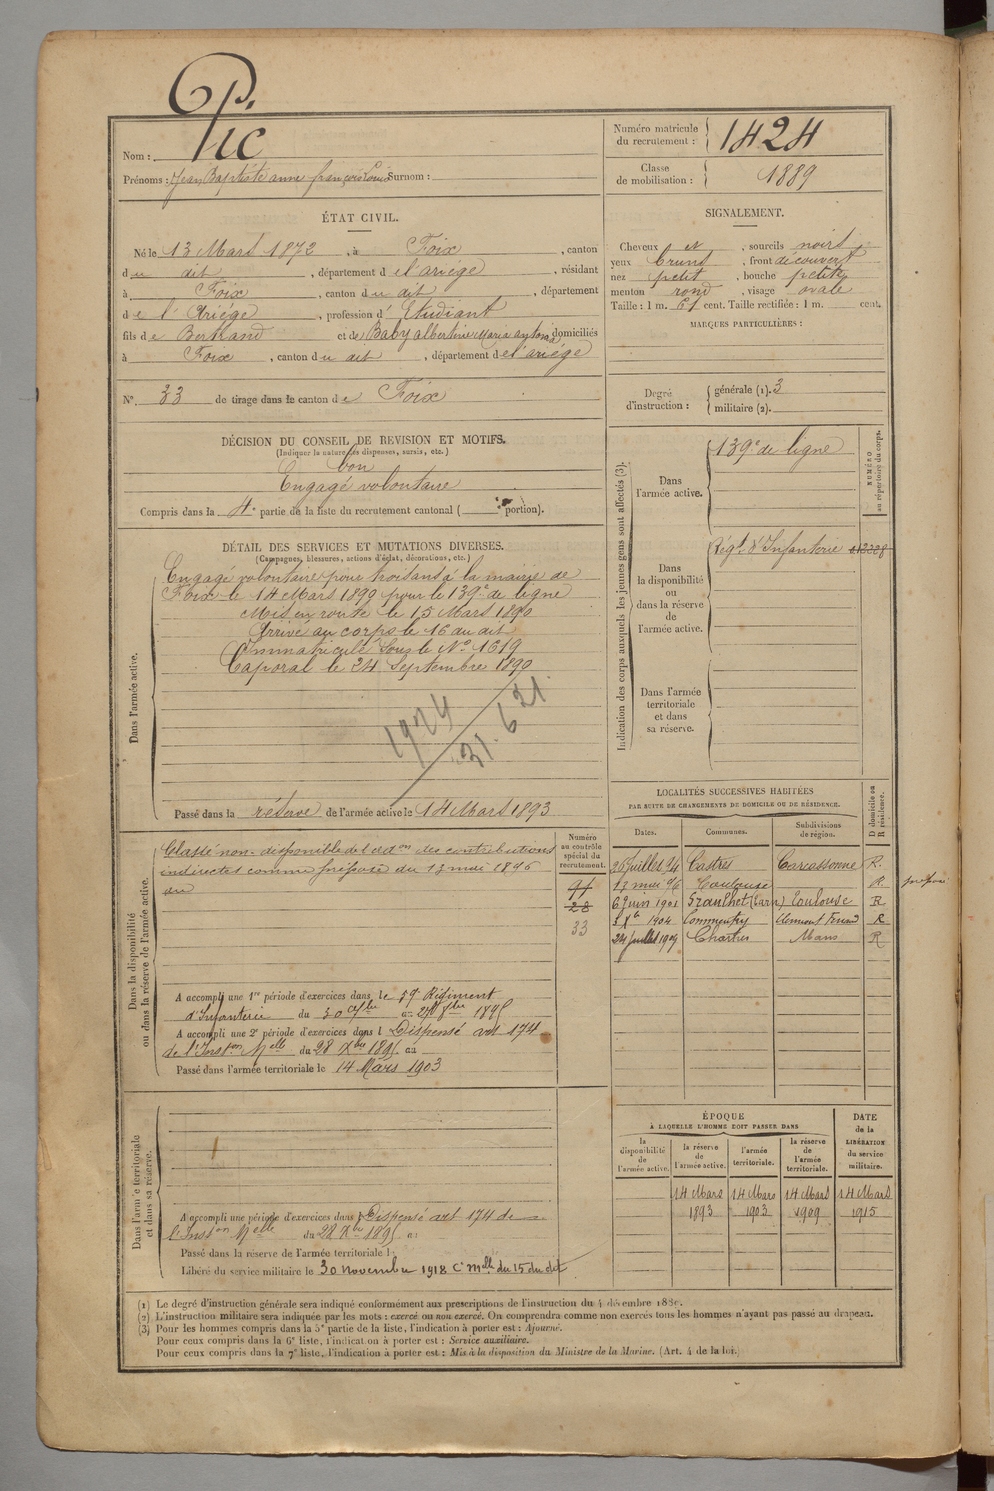 P.
Nom : Pic
Prénoms : Jean Baptiste anne françois Louis Surnom :
Numéro matricule du recrutement : 1424
Classe de mobilisation : 1889
ÉTAT CIVIL.
Né le 13 Mars 1872, à Foix, canton
du dit, département de l'ariège, résidant
à Foix, canton du dit, département
de l'Ariège, profession d'Etudiant
fils de Bertrand et de Baby albertine Maria domiciliés
à Foix, canton du dit, département de l'ariège
N° 33 de tirage dans le canton de Foix
SIGNALEMENT.
Cheveux et, sourcils noirs
yeux bruns, front découvert
nez petit, bouche petite
menton rond, visage ovale
Taille : 1 m. 61 cent. Taille rectifiée : 1 m. cent.
MARQUES PARTICULIÈRES :
Degré d'instruction : générale (1). 3
militaire (2).
DÉCISION DU CONSEIL DE REVISION ET MOTIFS.
(Indiquer la nature des dispenses, sursis, etc.)
bon
Engagé volontaire
Compris dans la 4e partie de la liste du recrutement cantonal ( portion).
DÉTAIL DES SERVICES ET MUTATIONS DIVERSES.
(Campagnes, blessures, actions d'éclat, décorations, etc.)
Dans l'armée active.
Engagé volontaire pour trois ans à la mairie de
Foix le 14 Mars 1890 pour le 139e de ligne
Mis en route le 15 Mars 1890
Arrivé au corps le 16 du dit
Immatriculé sous le N° 1619
Caporal le 24 Septembre 1890
1924
31.6.21.
Passé dans la réserve de l'armée active le 14 Mars 1893
Indication des corps auxquels les jeunes gens sont affectés (3).
NUMÉRO au répertoire du corps.
Dans l'armée active.
139e de ligne
Dans la disponibilité ou dans la réserve de l'armée active.
Régt d'Infanterie
Dans l'armée territoriale et dans sa réserve.
LOCALITÉS SUCCESSIVES HABITÉES
PAR SUITE DE CHANGEMENTS DE DOMICILE OU DE RÉSIDENCE.
D domicile ou R résidence.
Dates. Communes. Subdivisions de région.
26 juillet 94 Castres Carcassonne R.
13 mai 96 Toulouse R.
6 juin 1901 Graulhet (Tarn) Toulouse R
5 Xbre 1904 Commentry Clermont Ferrand R
24 juillet 1909 Chartres Mans R
Dans la disponibilité ou dans la réserve de l'armée active.
Numéro au contrôle spécial du recrutement.
Classé non-disponible de l'adon des contributions
indirectes comme préposé du 13 mai 1896
au
91
28
33
A accompli une 1re période d'exercices dans le 59 Régiment
d'Infanterie du 30 au 8bre 1895
A accompli une 2e période d'exercices dans l Dispensé art 174
de l'Inston Melle du 28 Xbre 1895 au
Passé dans l'armée territoriale le 14 Mars 1903
Dans l'armée territoriale et dans sa réserve.
A accompli une période d'exercices dans l Dispensé art 174 de
l'Inston Melle du 28 Xbre 1895 au
Passé dans la réserve de l'armée territoriale l
Libéré du service militaire le 30 novembre 1918 Cre Melle du 15 du dit
ÉPOQUE
À LAQUELLE L'HOMME DOIT PASSER DANS
DATE de la LIBÉRATION du service militaire.
la disponibilité de l'armée active. la réserve de l'armée active. l'armée territoriale. la réserve de l'armée territoriale.
14 Mars 14 Mars 14 Mars 14 Mars
1893 1903 1909 1915
(1) Le degré d'instruction générale sera indiqué conformément aux prescriptions de l'instruction du 4 décembre 1889.
(2) L'instruction militaire sera indiquée par les mots : exercé ou non exercé. On comprendra comme non exercés tous les hommes n'ayant pas passé au drapeau.
(3) Pour les hommes compris dans la 5e partie de la liste, l'indication à porter est : Ajourné.
Pour ceux compris dans la 6e liste, l'indication à porter est : Service auxiliaire.
Pour ceux compris dans la 7e liste, l'indication à porter est : Mis à la disposition du Ministre de la Marine. (Art. 4 de la loi.)